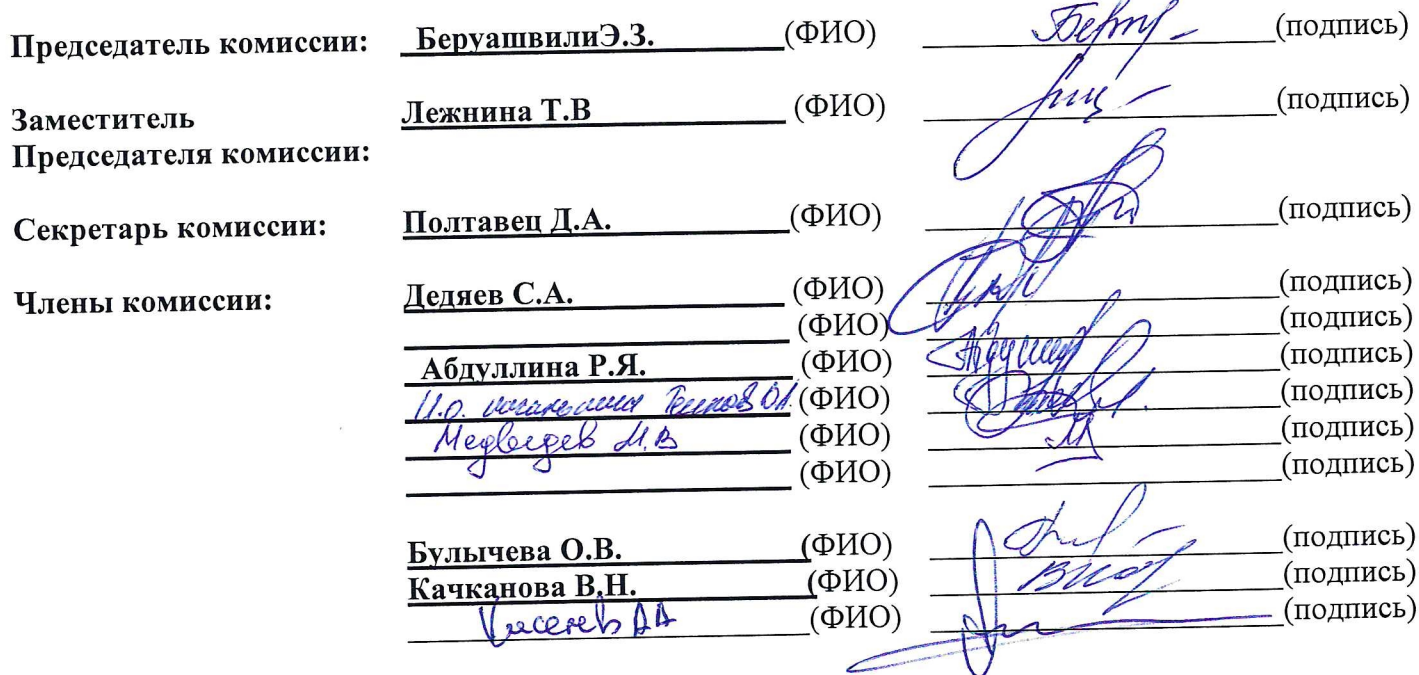 Председатель комиссии: БеруашвилиЭ.З. (ФИО) (подпись)
Заместитель Лежнина Т.В (ФИО) (подпись)
Председателя комиссии:
Секретарь комиссии: Полтавец Д.А. (ФИО) (подпись)
Члены комиссии: Дедяев С.А. (ФИО) (подпись)
(ФИО) (подпись)
Абдуллина Р.Я. (ФИО) (подпись)
И.о. (ФИО) (подпись)
Медведев М.В (ФИО) (подпись)
(ФИО) (подпись)
Булычева О.В. (ФИО) (подпись)
Качканова В.Н. (ФИО) (подпись)
(ФИО) (подпись)